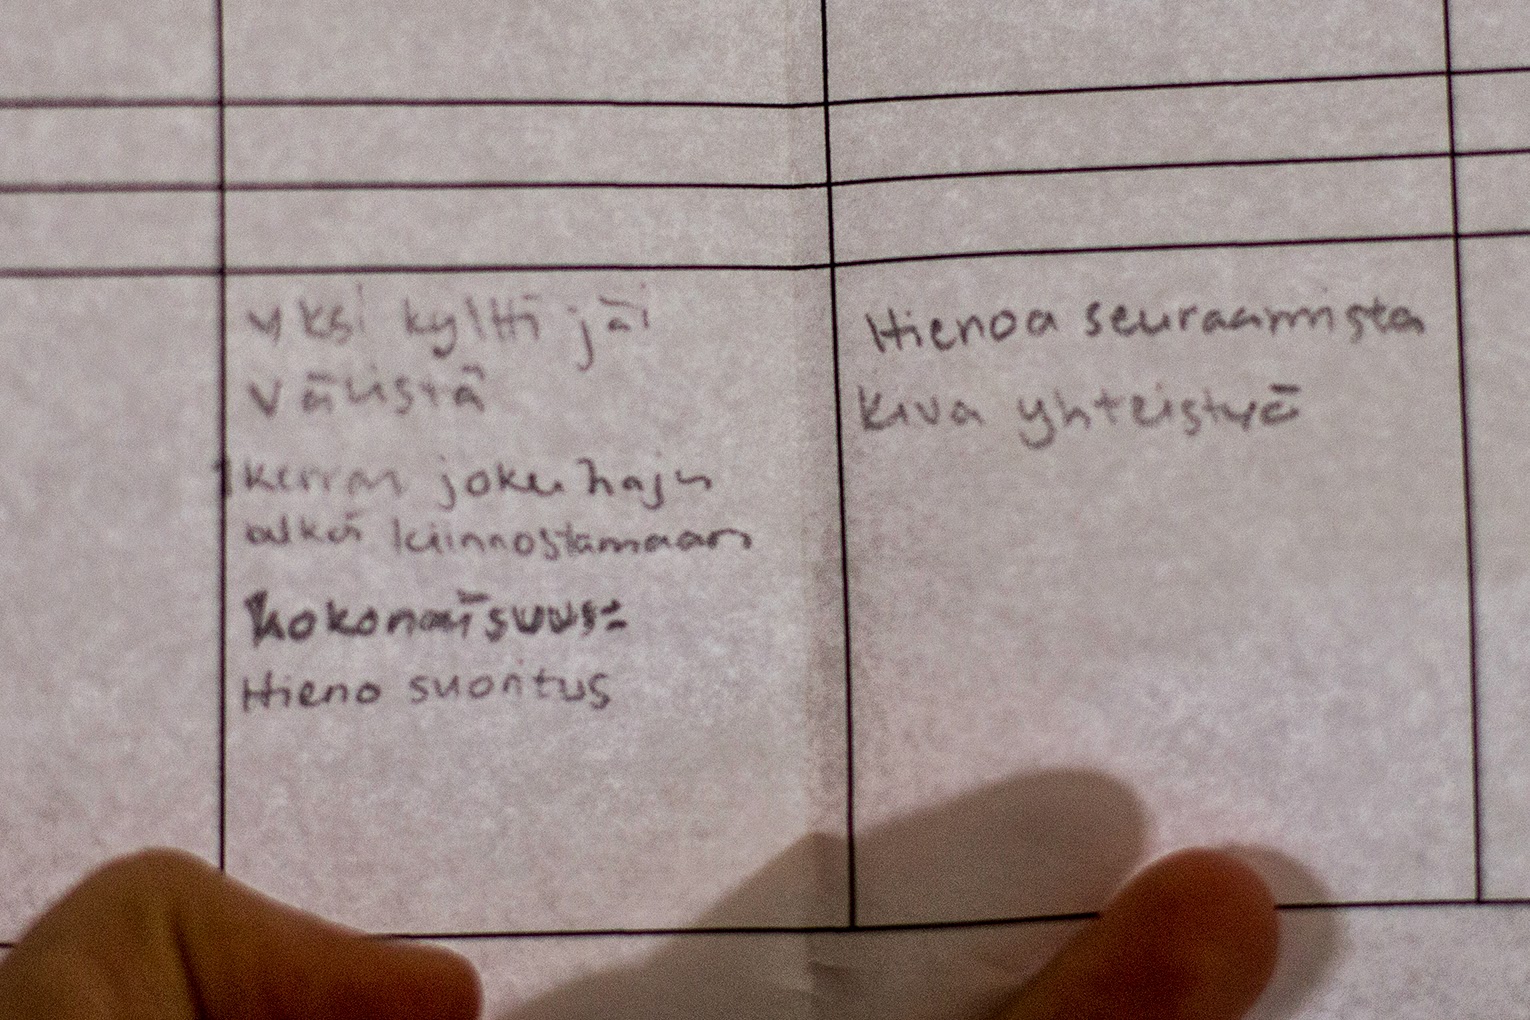 yksi kyltti jäi
välistä
kerran joku haju
alkoi kiinnostamaan
kokonaisuus:
Hieno suoritus
Hienoa seuraamista
Kiva yhteistyö